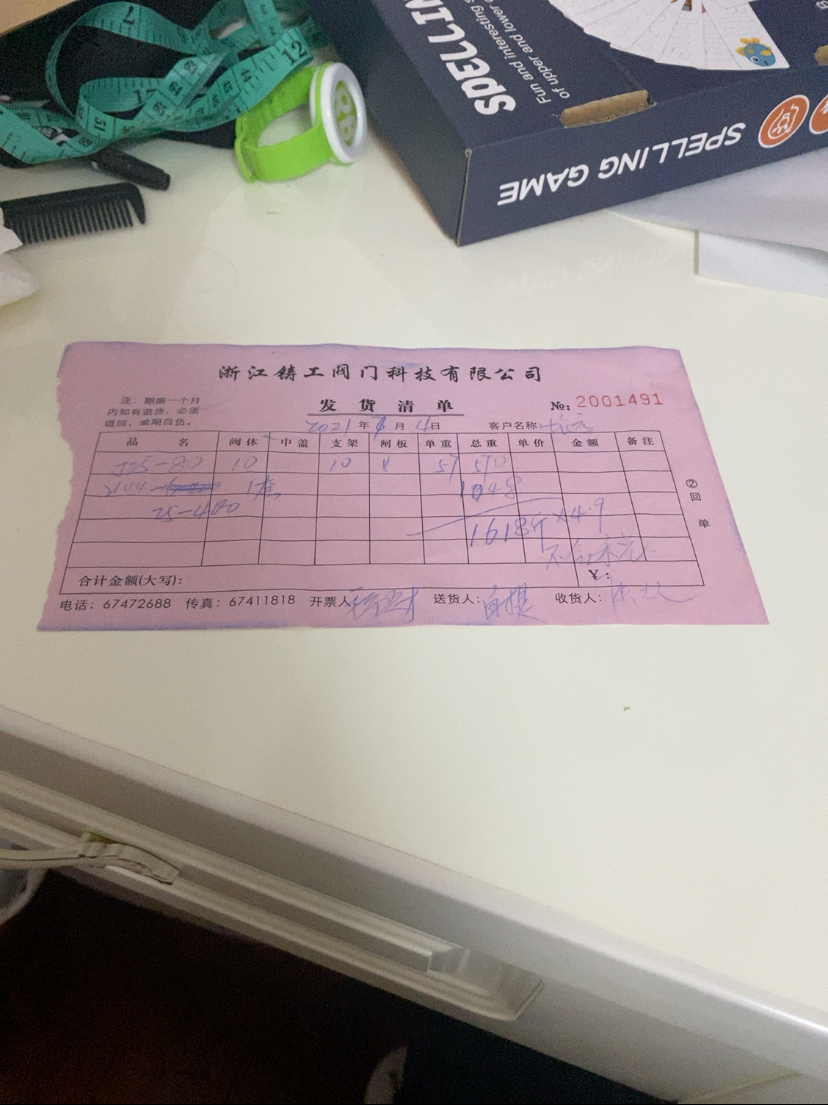 SPELLIN
Fun and interesting
of upper and lower
SPELLING GAME
浙江铸工阀门科技有限公司
注：期限一个月
内如有退货，必须
退回，逾期自负。
发货清单
№: 2001491
2021年 月4日 客户名称
品名 阀体 中盖 支架 闸板 单重 总重 单价 金额 备注
J25-80 10 10 57 570
1套 1048
25-400
1618斤×4.9
②回单
合计金额(大写): ¥:
电话：67472688 传真：67411818 开票人: 送货人:自提 收货人: